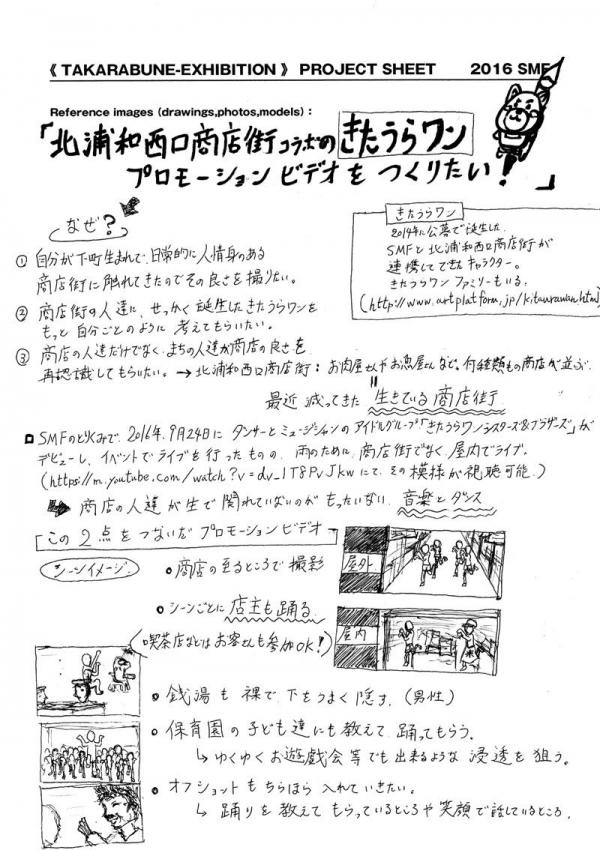 《 TAKARABUNE-EXHIBITION 》 PROJECT SHEET 2016 SMF
Reference images (drawings,photos,models) :
「北浦和西口商店街コラボの きたうらワン
プロモーションビデオを つくりたい! 」
なぜ?
① 自分が下町生まれで、日常的に人情身のある
商店街に触れてきたのでその良さを撮りたい。
② 商店街の人達に、せっかく誕生したきたうらワンを
もっと 自分ごとのように 考えてもらいたい。
③ 商店の人達だけでなく、まちの人達が商店の良さを
再認識してもらいたい。→ 北浦和西口商店街: お肉屋さんやお魚屋さんなど、何種類もの商店が並ぶ
最近 減ってきた 生きている商店街
きたうらワン
2014年に公募で誕生した
SMFと北浦和西口商店街が
連携してできたキャラクター。
きたうらワン ファミリーもいる。
(http://www.artplatform.jp/kitaurawan.htm)
SMFのとりくみで、2016.9月24日に ダンサーとミュージシャンのアイドルグループ「きたうらワン・シスターズ&ブラザーズ」が
デビューし、イベントでライブを行ったものの、雨のために、商店街でなく、屋内でライブ。
(https://m.youtube.com/watch?v=dv_1T8PvJkw にて、その模様が視聴可能。)
商店の人達が生で関れていないのがもったいない 音楽とダンス
この2点をつないだプロモーションビデオ
シーンイメージ
商店の至るところで撮影
屋外
シーンごとに店主も踊る
(喫茶店などはお客さんも参加OK!)
屋内
銭湯も裸で下をうまく隠す。(男性)
保育園の子ども達にも教えて踊ってもらう。
↳ ゆくゆくお遊戯会等でも出来るような 浸透を狙う。
オフショットもちらほら入れていきたい。
↳ 踊りを教えてもらっているところや笑顔で話しているところ。